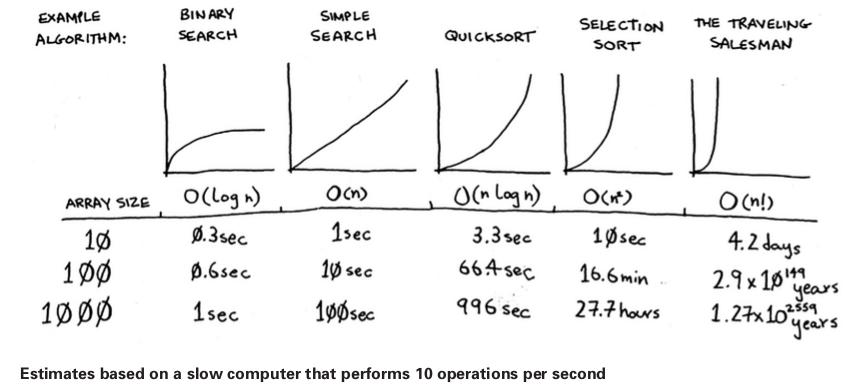 EXAMPLE ALGORITHM:
BINARY SEARCH
SIMPLE SEARCH
QUICKSORT
SELECTION SORT
THE TRAVELING SALESMAN
ARRAY SIZE O(log n) O(n) O(n log n) O(n²) O(n!)
10 0.3sec 1sec 3.3sec 10sec 4.2 days
100 0.6sec 10sec 66.4sec 16.6min 2.9 x 10¹⁴⁹ years
1000 1sec 100sec 996 sec 27.7 hours 1.27x10²⁵⁵⁹ years
Estimates based on a slow computer that performs 10 operations per second